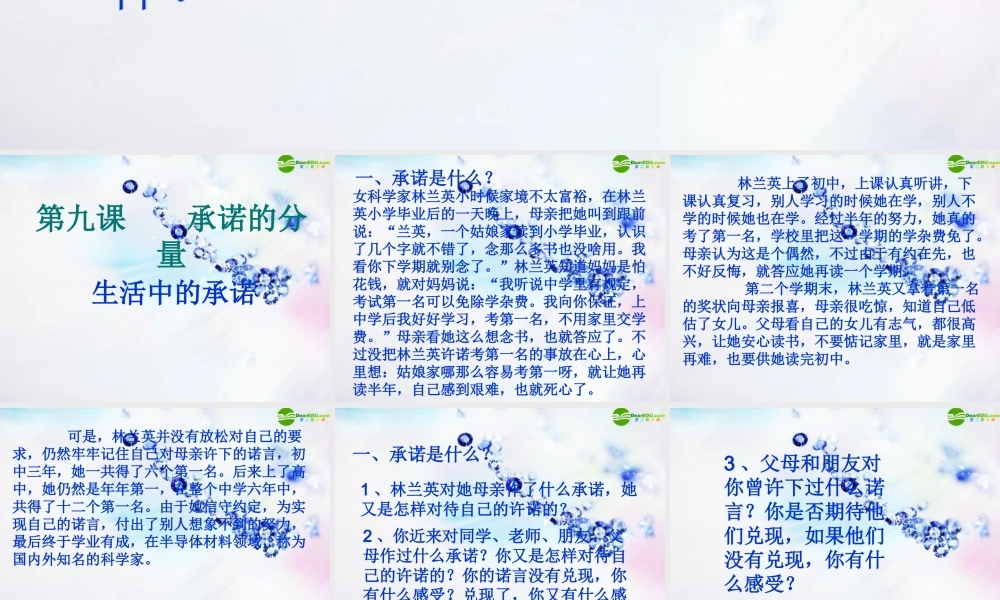 DearEDU.com
第九课 承诺的分
量
生活中的承诺
DearEDU.com
一、承诺是什么?
女科学家林兰英小时候家境不太富裕，在林兰
英小学毕业后的一天晚上，母亲把她叫到跟前
说：“兰英，一个姑娘家读到小学毕业，认识
了几个字就不错了，念那么多书也没啥用。我
看你下学期就别念了。”林兰英知道妈妈是怕
花钱，就对妈妈说：“我听说中学里有规定，
考试第一名可以免除学杂费。我向你保证，上
中学后我好好学习，考第一名，不用家里交学
费。”母亲看她这么想念书，也就答应了。不
过没把林兰英许诺考第一名的事放在心上，心
里想：姑娘家哪那么容易考第一呀，就让她再
读半年，自己感到艰难，也就死心了。
DearEDU.com
林兰英上了初中，上课认真听讲，下
课认真复习，别人学习的时候她在学，别人不
学的时候她也在学。经过半年的努力，她真的
考了第一名，学校里把这个学期的学杂费免了。
母亲认为这是个偶然，不过由于有约在先，也
不好反悔，就答应她再读一个学期。
第二个学期末，林兰英又拿着第一名
的奖状向母亲报喜，母亲很吃惊，知道自己低
估了女儿。父母看自己的女儿有志气，都很高
兴，让她安心读书，不要惦记家里，就是家里
再难，也要供她读完初中。
DearEDU.com
可是，林兰英并没有放松对自己的要
求，仍然牢牢记住自己对母亲许下的诺言，初
中三年，她一共得了六个第一名。后来上了高
中，她仍然是年年第一，在整个中学六年中，
共得了十二个第一名。由于她信守约定，为实
现自己的诺言，付出了别人想象不到的努力，
最后终于学业有成，在半导体材料领域，称为
国内外知名的科学家。
DearEDU.com
一、承诺是什么?
1、林兰英对她母亲作了什么承诺，她
又是怎样对待自己的许诺的?
2、你近来对同学、老师、朋友、父
母作过什么承诺？你又是怎样对待自
己的许诺的？你的诺言没有兑现，你
有什么感受？兑现了，你又有什么感
DearEDU.com
3、父母和朋友对
你曾许下过什么诺
言？你是否期待他
们兑现，如果他们
没有兑现，你有什
么感受？